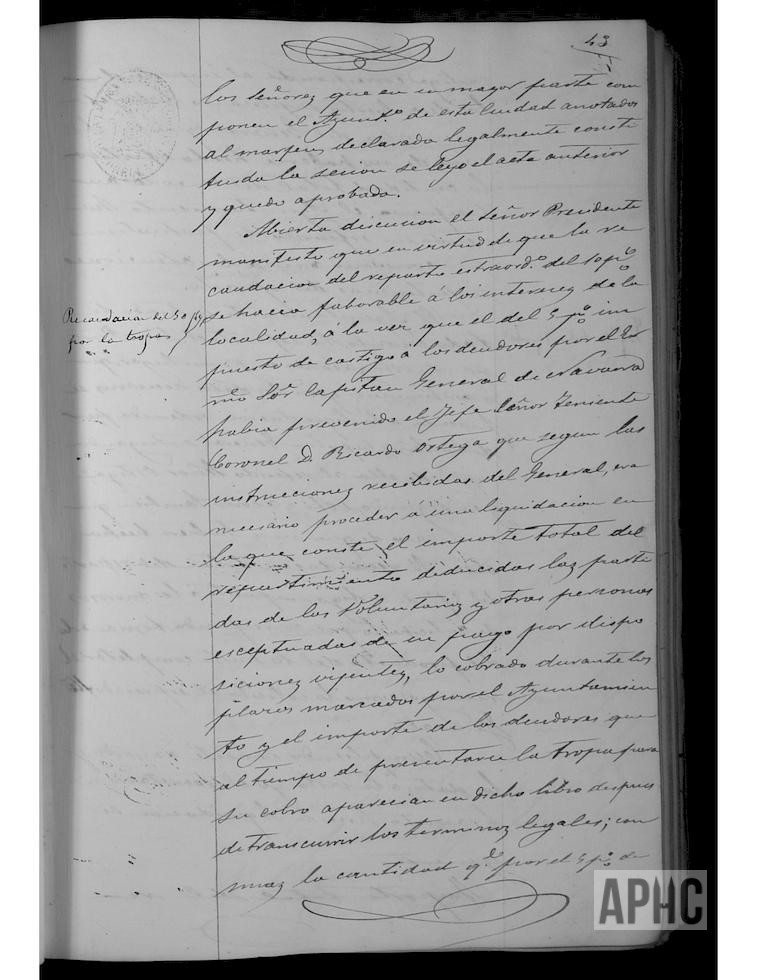 43
los señores que en su mayor parte com
ponen el Ayunt.º de esta ciudad anotados
al margen, declarada legalmente consti
tuida la sesion se leyo el acta anterior
y quedo aprobada.
Abierta discucion el señor Presidente
manifesto que en virtud de que la re
caudacion del reparto estraord.º del 10 p.º
se hacia faborable á los interezes de la
localidad, á la vez que el del 5 p.º im
puesto de castigo á los deudores por el Ex
mo Sor Capitan General de Navarra
habia prevenido el Jefe señor Teniente
Coronel D. Ricardo Ortega que segun las
instrucciones recibidas del General, era
necesario proceder á una liquidacion en
la que conste el importe total del
repartimiento deducidas las parti
das de los Voluntarios y otras personas
esceptuadas de su pago por dispo
siciones vijentes, lo cobrado durante los
plazos marcados por el Ayuntamien
to y el importe de los deudores que
al tiempo de presentarse la tropa para
su cobro aparecian en dicho libro despues
de transcurrir los terminos legales; con
mas la cantidad q.e por el 5 p.º de
Recaudacion del
por la tropa
APHC